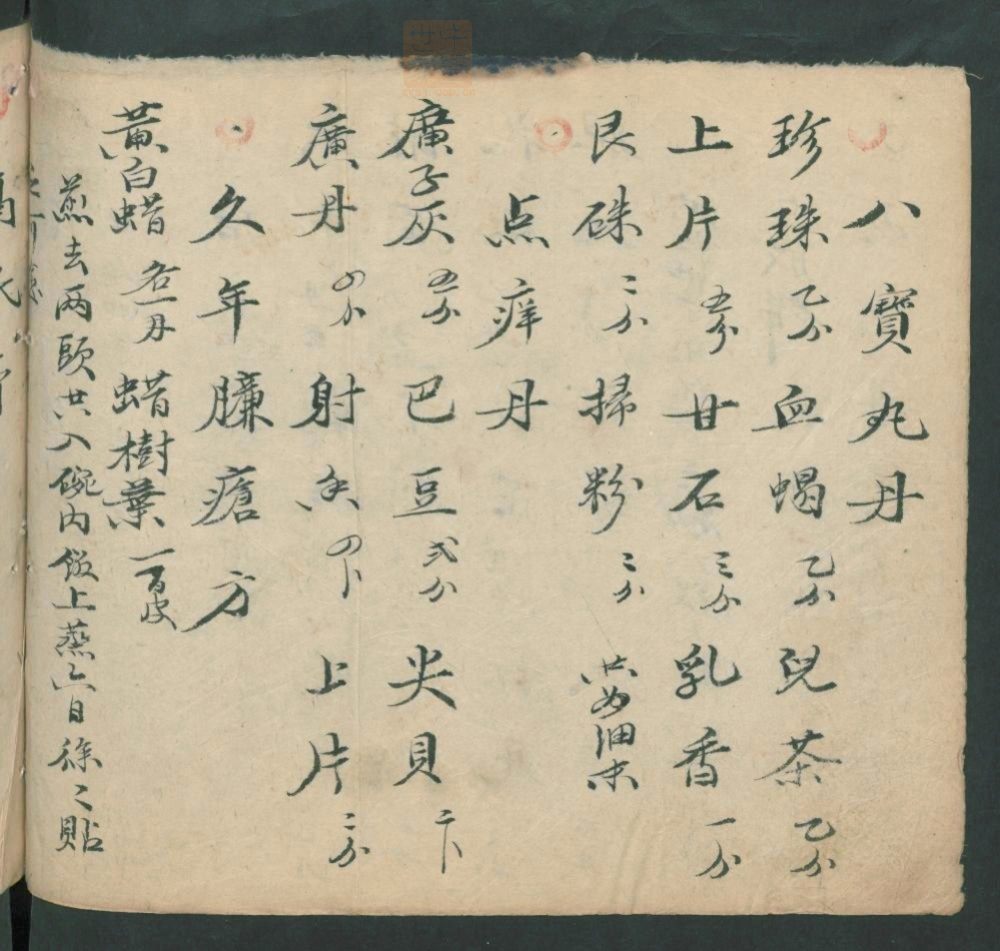 八寶丸丹
珍珠乙分 血蝎乙分 兒茶乙分
上片五分 甘石三分 乳香一分
艮硃二分 掃粉三分 共為細末
点痒丹
廣子灰五分 巴豆弍分 尖貝二卜
廣丹四分 射香四卜 上片二分
久年臁瘡方
黃白蜡各一丹 蜡樹葉一百皮
煎去两頭共入碗内飯上蒸六日徐〻貼